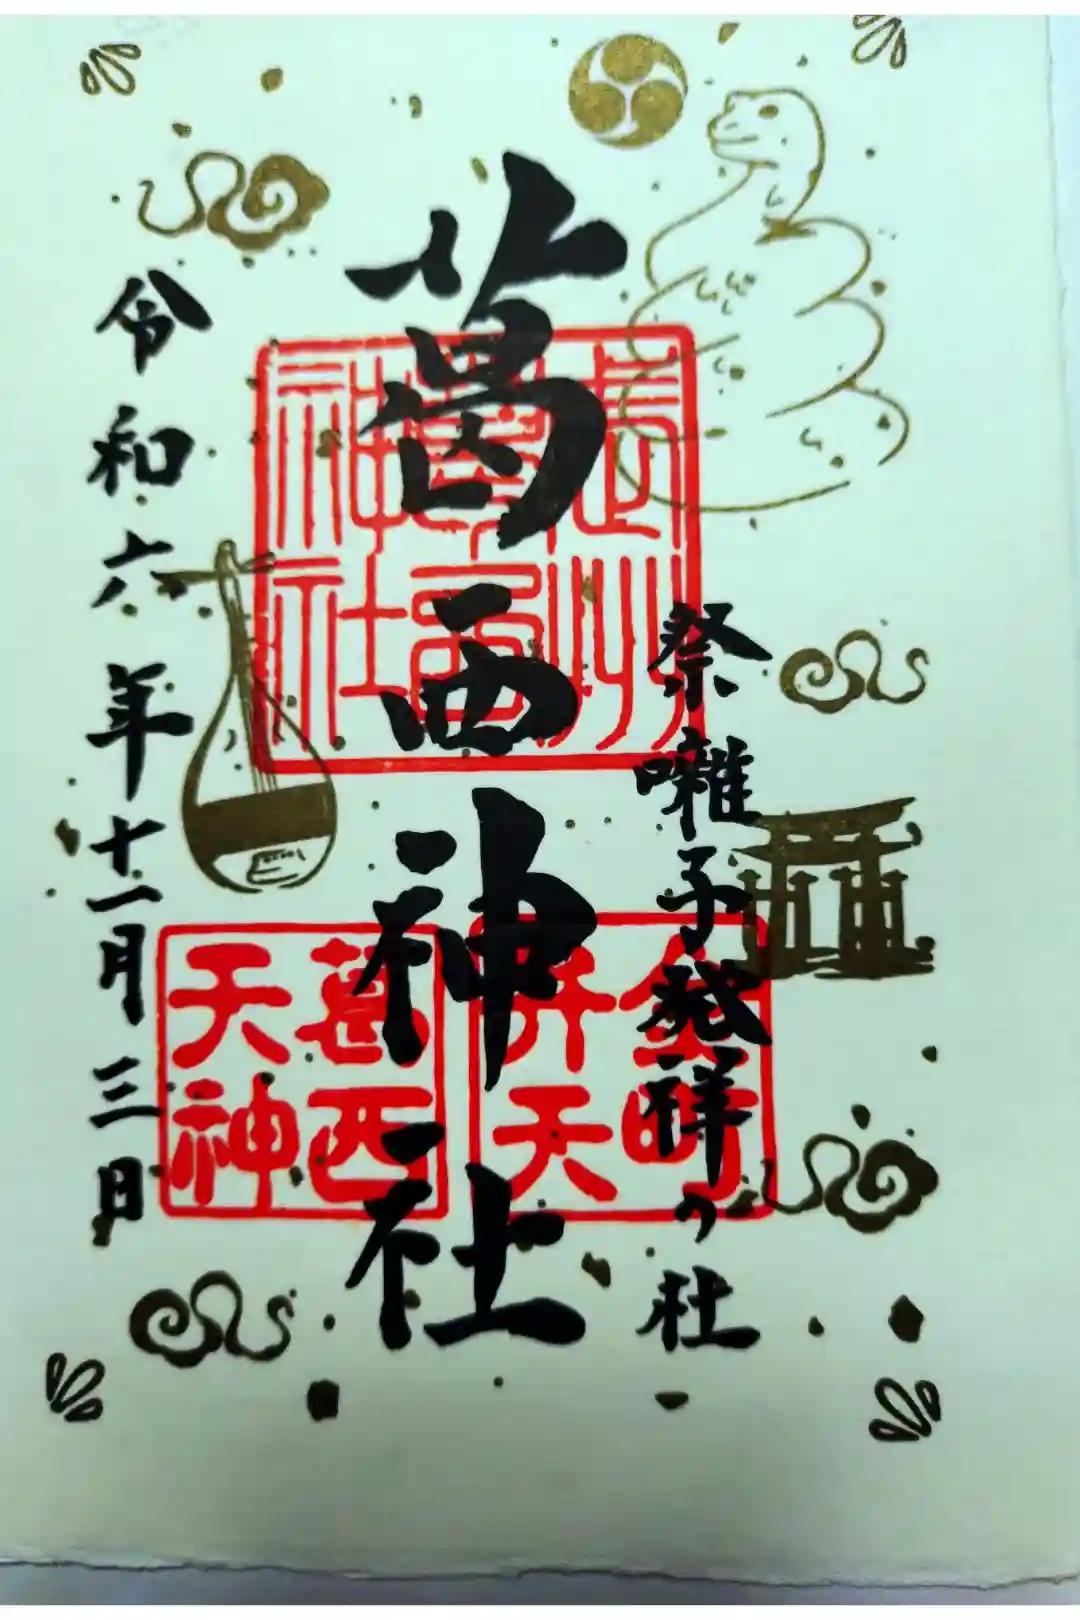 祭囃子発祥の社
葛西神社
武州葛西神社
金町弁天
葛西天神
令和六年十一月三日